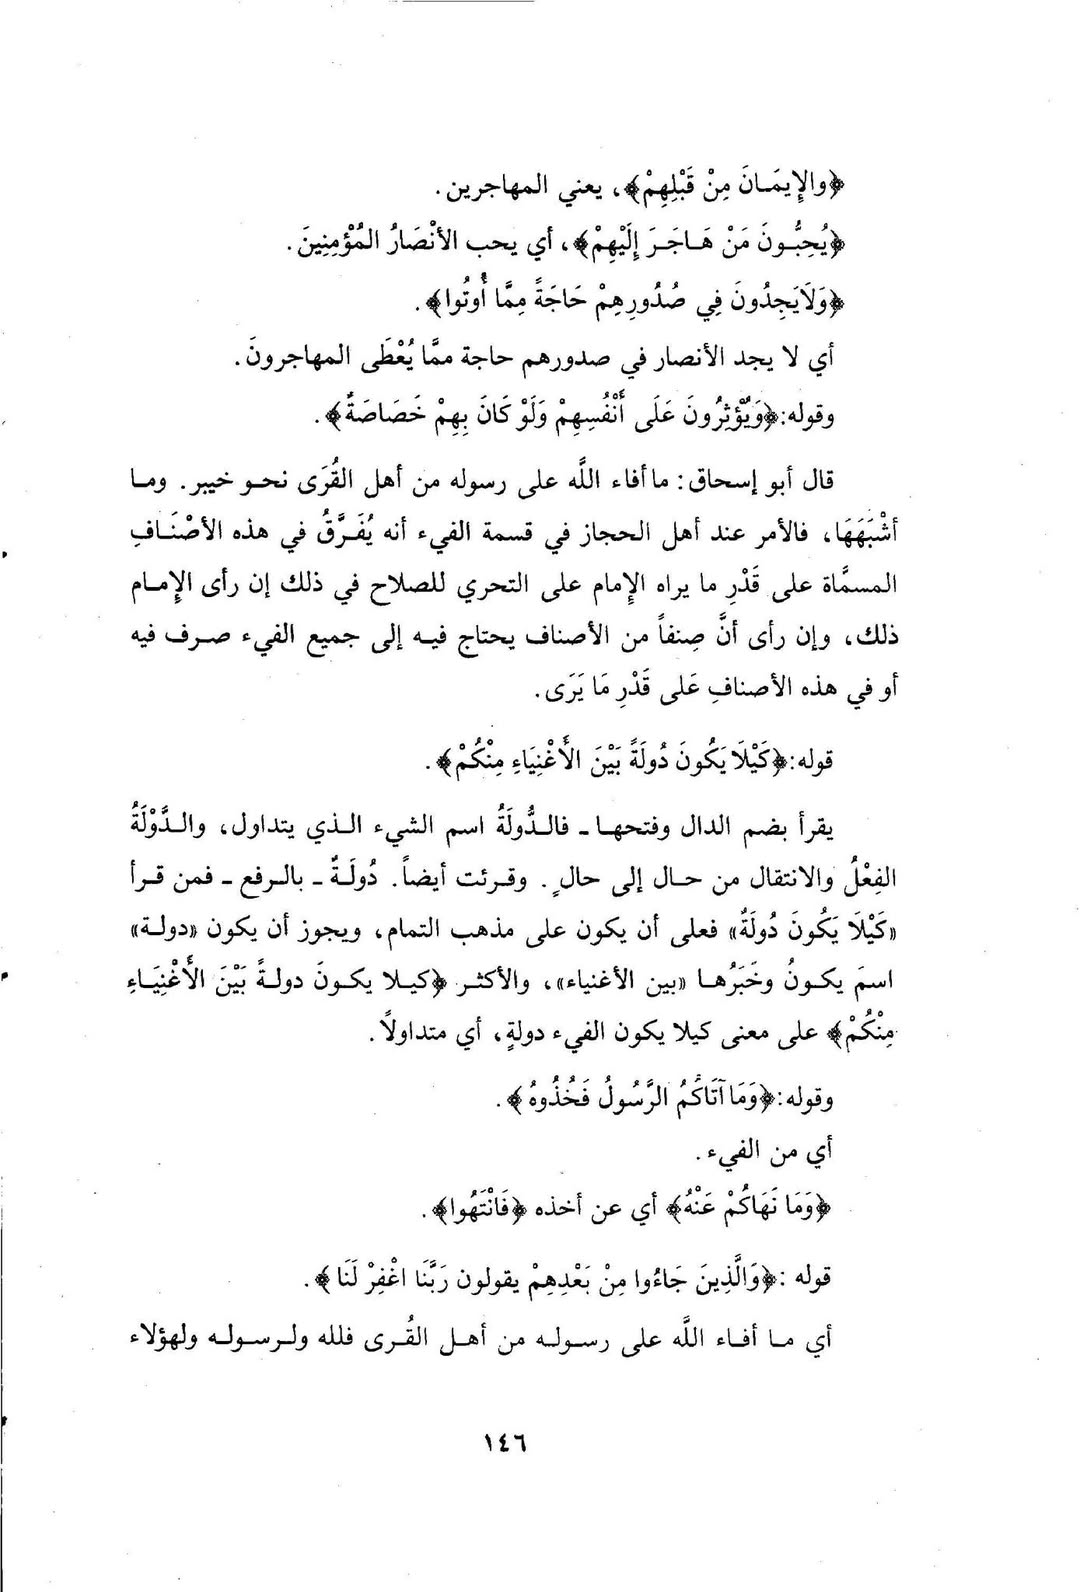 ﴿والإِيمَـانَ مِنْ قَبْلِهِمْ﴾، يعني المهاجرين.
﴿يُحِبُّـونَ مَنْ هَـاجَـرَ إِلَيْهِمْ﴾، أي يحب الأنْصَارُ المُؤْمِنِينَ.
﴿وَلَايَجِدُونَ فِي صُدُورِهِمْ حَاجَةً مِمَّا أُوتُوا﴾.
أي لا يجد الأنصار في صدورهم حاجة ممَّا يُعْطَى المهاجرونَ.
وقوله:﴿وَيُؤْثِرُونَ عَلَى أَنْفُسِهِمْ وَلَوْ كَانَ بِهِمْ خَصَاصَةٌ﴾.
قال أبو إسحاق: ما أفاء اللَّه على رسوله من أهل القُرَى نحـو خيبر. ومـا
أشْبَهَهَا، فالأمر عند أهل الحجاز في قسمة الفيء أنه يُفَرَّقُ في هذه الأصْنَـافِ
المسمَّاة على قَدْرِ ما يراه الإمام على التحري للصلاح في ذلك إن رأى الإمـام
ذلك، وإن رأى أنَّ صِنفاً من الأصناف يحتاج فيـه إلى جميع الفيء صـرف فيه
أو في هذه الأصنافِ عَلى قَدْرِ مَا يَرَى.
قوله:﴿كَيْلَا يَكُونَ دُولَةً بَيْنَ الأَغْنِيَاءِ مِنْكُمْ﴾.
يقرأ بضم الدال وفتحهـا ـ فالـدُّولَةُ اسم الشيء الـذي يتداول، والـدَّوْلَةُ
الفِعْلُ والانتقال من حـال إلى حالٍ. وقـرئت أيضاً. دُولَـةٌ ـ بالـرفع ـ فمن قـرأ
«كَيْلَا يَكُونَ دُولَةٌ» فعلى أن يكون على مذهب التمام، ويجوز أن يكون «دولـة»
اسمَ يكـونُ وخَبَرُهـا «بين الأغنياء»، والأكثـر ﴿كيـلا يكـونَ دولـةً بَيْنَ الأَغْنِيَـاءِ
مِنْكُمْ﴾ على معنى كيلا يكون الفيء دولةٍ، أي متداولاً.
وقوله:﴿وَمَا آتَاكُمُ الرَّسُولُ فَخُذُوهُ﴾.
أي من الفيء.
﴿وَمَا نَهَاكُمْ عَنْهُ﴾ أي عن أخذه ﴿فَانْتَهُوا﴾.
قوله :﴿وَالَّذِينَ جَاءُوا مِنْ بَعْدِهِمْ يقولون رَبَّنَا اغْفِرْ لَنَا﴾.
أي مـا أفـاء اللَّه على رسولـه من أهـل القُـرى فلله ولـرسولـه ولهؤلاء
١٤٦